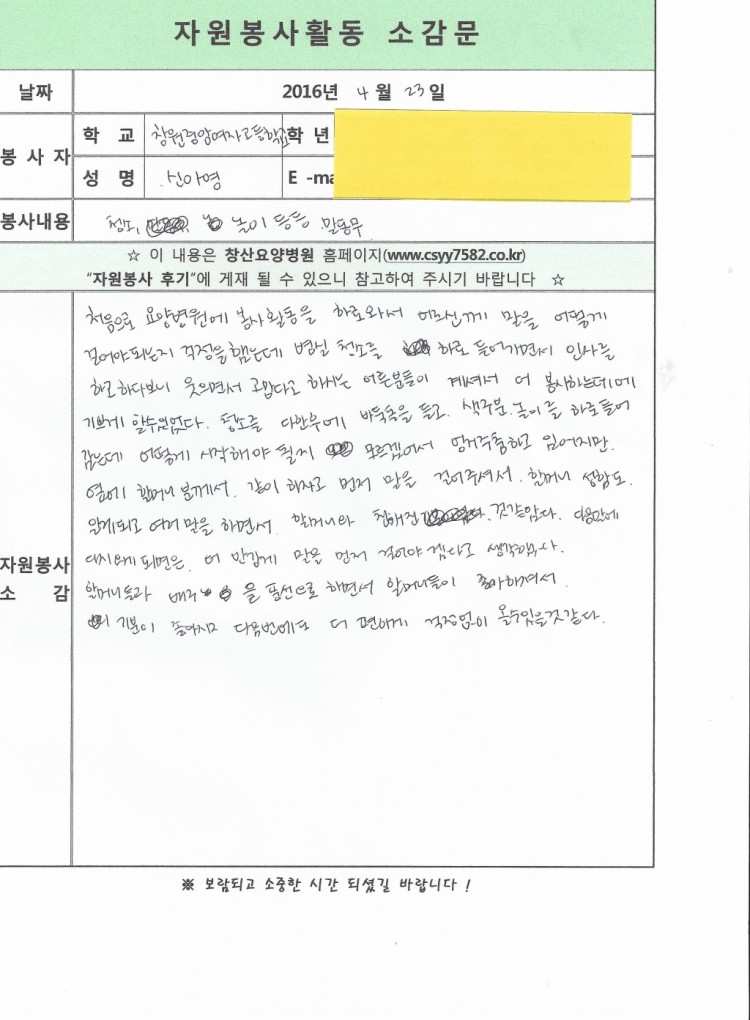 자원봉사활동 소감문
날짜 2016년 4월 23일
봉사자 학교 창원경암여자고등학교 학년
성명 신아영 E-ma
봉사내용 청소, 놀이 등등 말동무
☆ 이 내용은 창산요양병원 홈페이지(www.csyy7582.co.kr)
"자원봉사 후기"에 게재 될 수 있으니 참고하여 주시기 바랍니다 ☆
자원봉사 소감
처음으로 요양병원에 봉사활동을 하로와서 어르신께 말을 어떻게
걸어야되는지 걱정을 했는데 병실 청소를 하로 들어가면서 인사를
하고하다보니 웃으면서 고맙다고 하시는 어른분들이 계셔서 더 봉사하는데에
기쁘게 할수있었다. 청소를 다한후에 바둑돌을 들고. 색구분.놀이를 하로들어
갔는데 어떻게 시작해야 될지 모르겠어서 엉거주춤하고 있어지만.
옆에 할머니 분께서. 같이 하자고 먼저 말을 걸어주셔서. 할머니 성함도.
알게되고 여러 말을 하면서. 할머니와 친해진 것같았다. 다음번에
다시오게 되면은. 더 반갑게 말을 먼저 걸어야 겠다고 생각했다.
할머니들과 배구 을 풍선으로 하면서 할머니들이 좋아하셔서.
기분이 좋아지고 다음번에도 더 편하게 걱정없이 올수있을것같다.
※ 보람되고 소중한 시간 되셨길 바랍니다 !